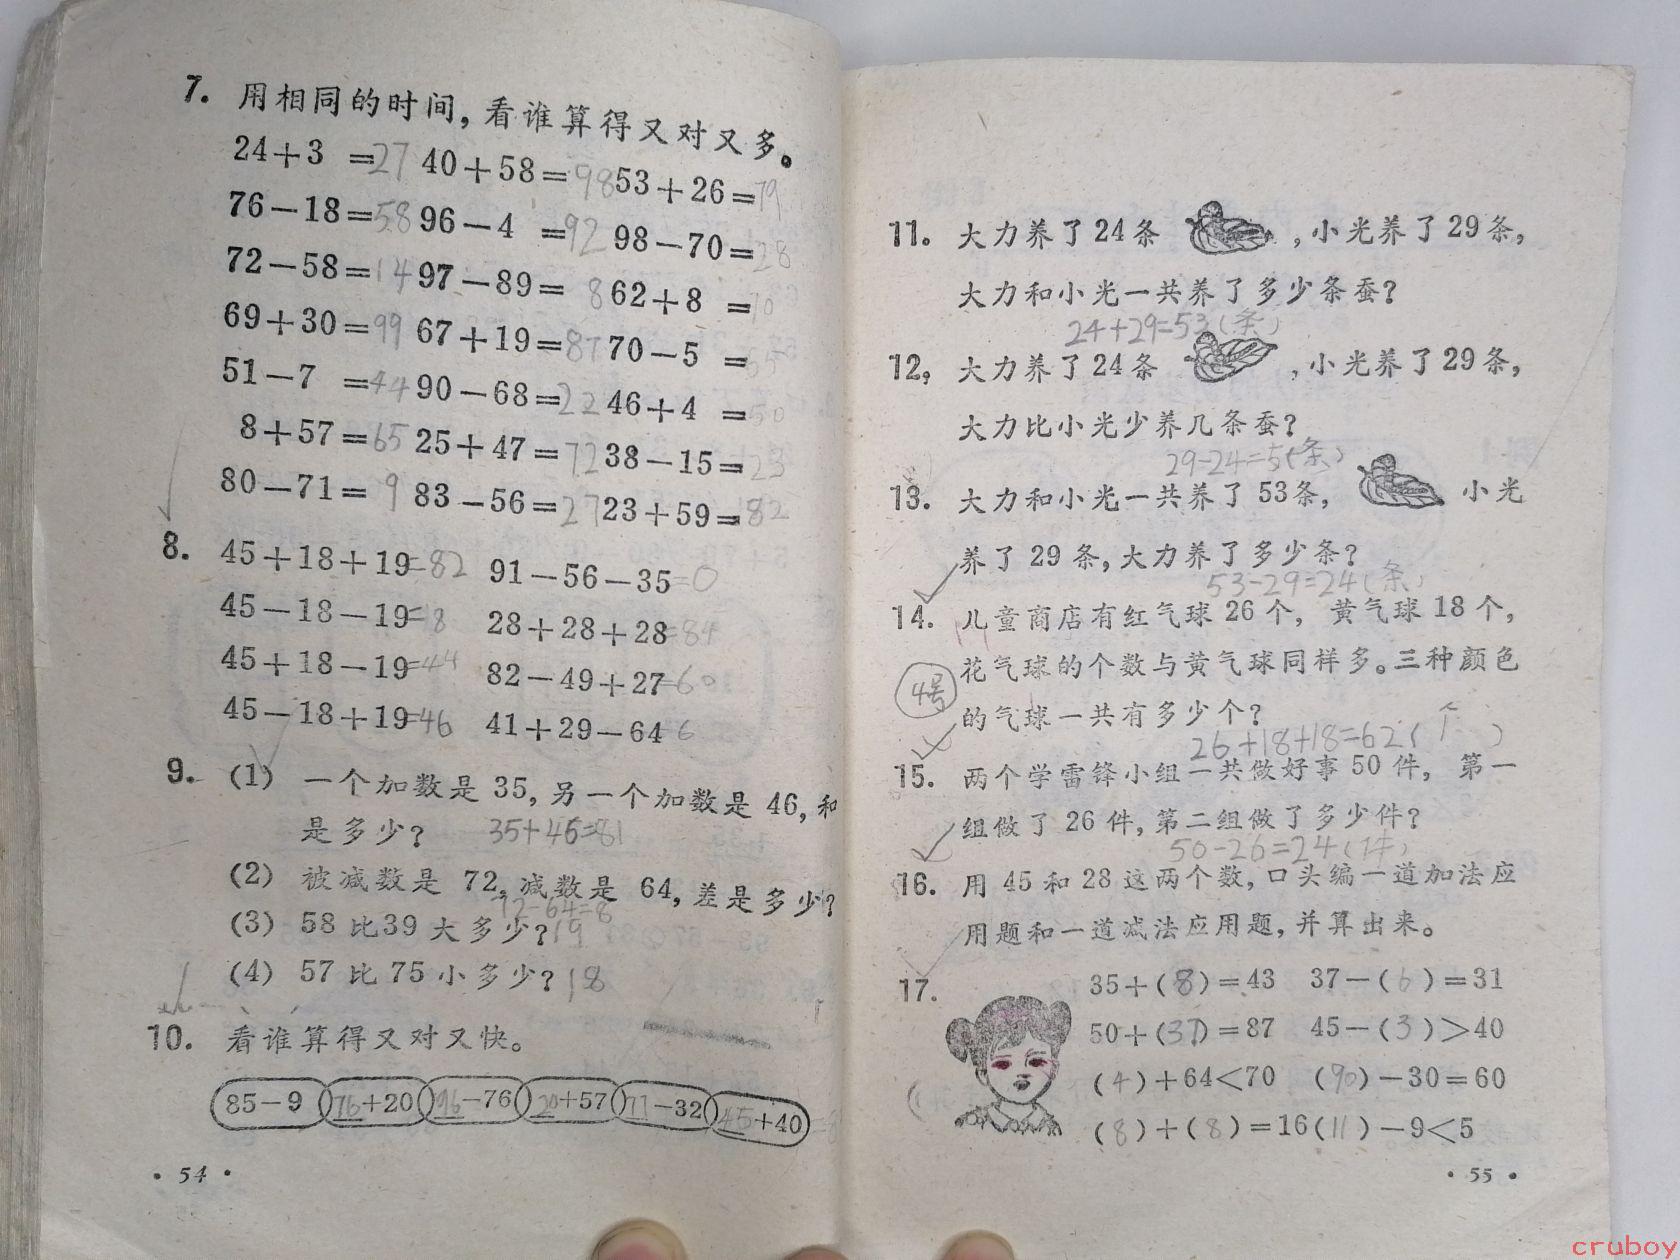 7. 用相同的时间,看谁算得又对又多。
24+3 =27 40+58=98 53+26=79
76-18=58 96-4 =92 98-70=28
72-58=14 97-89= 8 62+8 =70
69+30=99 67+19=87 70-5 =65
51-7 =44 90-68=22 46+4 =50
8+57=65 25+47=72 38-15=23
80-71= 9 83-56=27 23+59=82
8. 45+18+19=82 91-56-35=0
45-18-19=8 28+28+28=84
45+18-19=44 82-49+27=60
45-18+19=46 41+29-64=6
9. (1) 一个加数是 35,另一个加数是 46,和
是多少? 35+46=81
(2) 被减数是 72,减数是 64,差是多少?
72-64=8
(3) 58 比39 大多少?19
(4) 57 比 75 小多少?18
10. 看谁算得又对又快。
85-9 76+20 96-76 20+57 77-32 45+40=8
· 54 ·
11. 大力养了24条 ,小光养了29条,
大力和小光一共养了多少条蚕?
24+29=53(条)
12, 大力养了24条 ,小光养了29条,
大力比小光少养几条蚕?
29-24=5(条)
13. 大力和小光一共养了 53条, 小光
养了 29 条,大力养了多少条?
53-29=24(条)
14. 儿童商店有红气球 26 个, 黄气球 18 个,
花气球的个数与黄气球同样多。三种颜色
4号
的气球一共有多少个?
26+18+18=62(个)
15. 两个学雷锋小组一共做好事 50 件, 第一
组做了 26 件,第二组做了多少件?
50-26=24(件)
16. 用 45 和 28 这两个数,口头编一道加法应
用题和一道减法应用题,并算出来。
17. 35+(8)=43 37-(6)=31
50+(37)=87 45-(3)>40
(4)+64<70 (90)-30=60
(8)+(8)=16 (11)-9<5
· 55 ·
cruboy